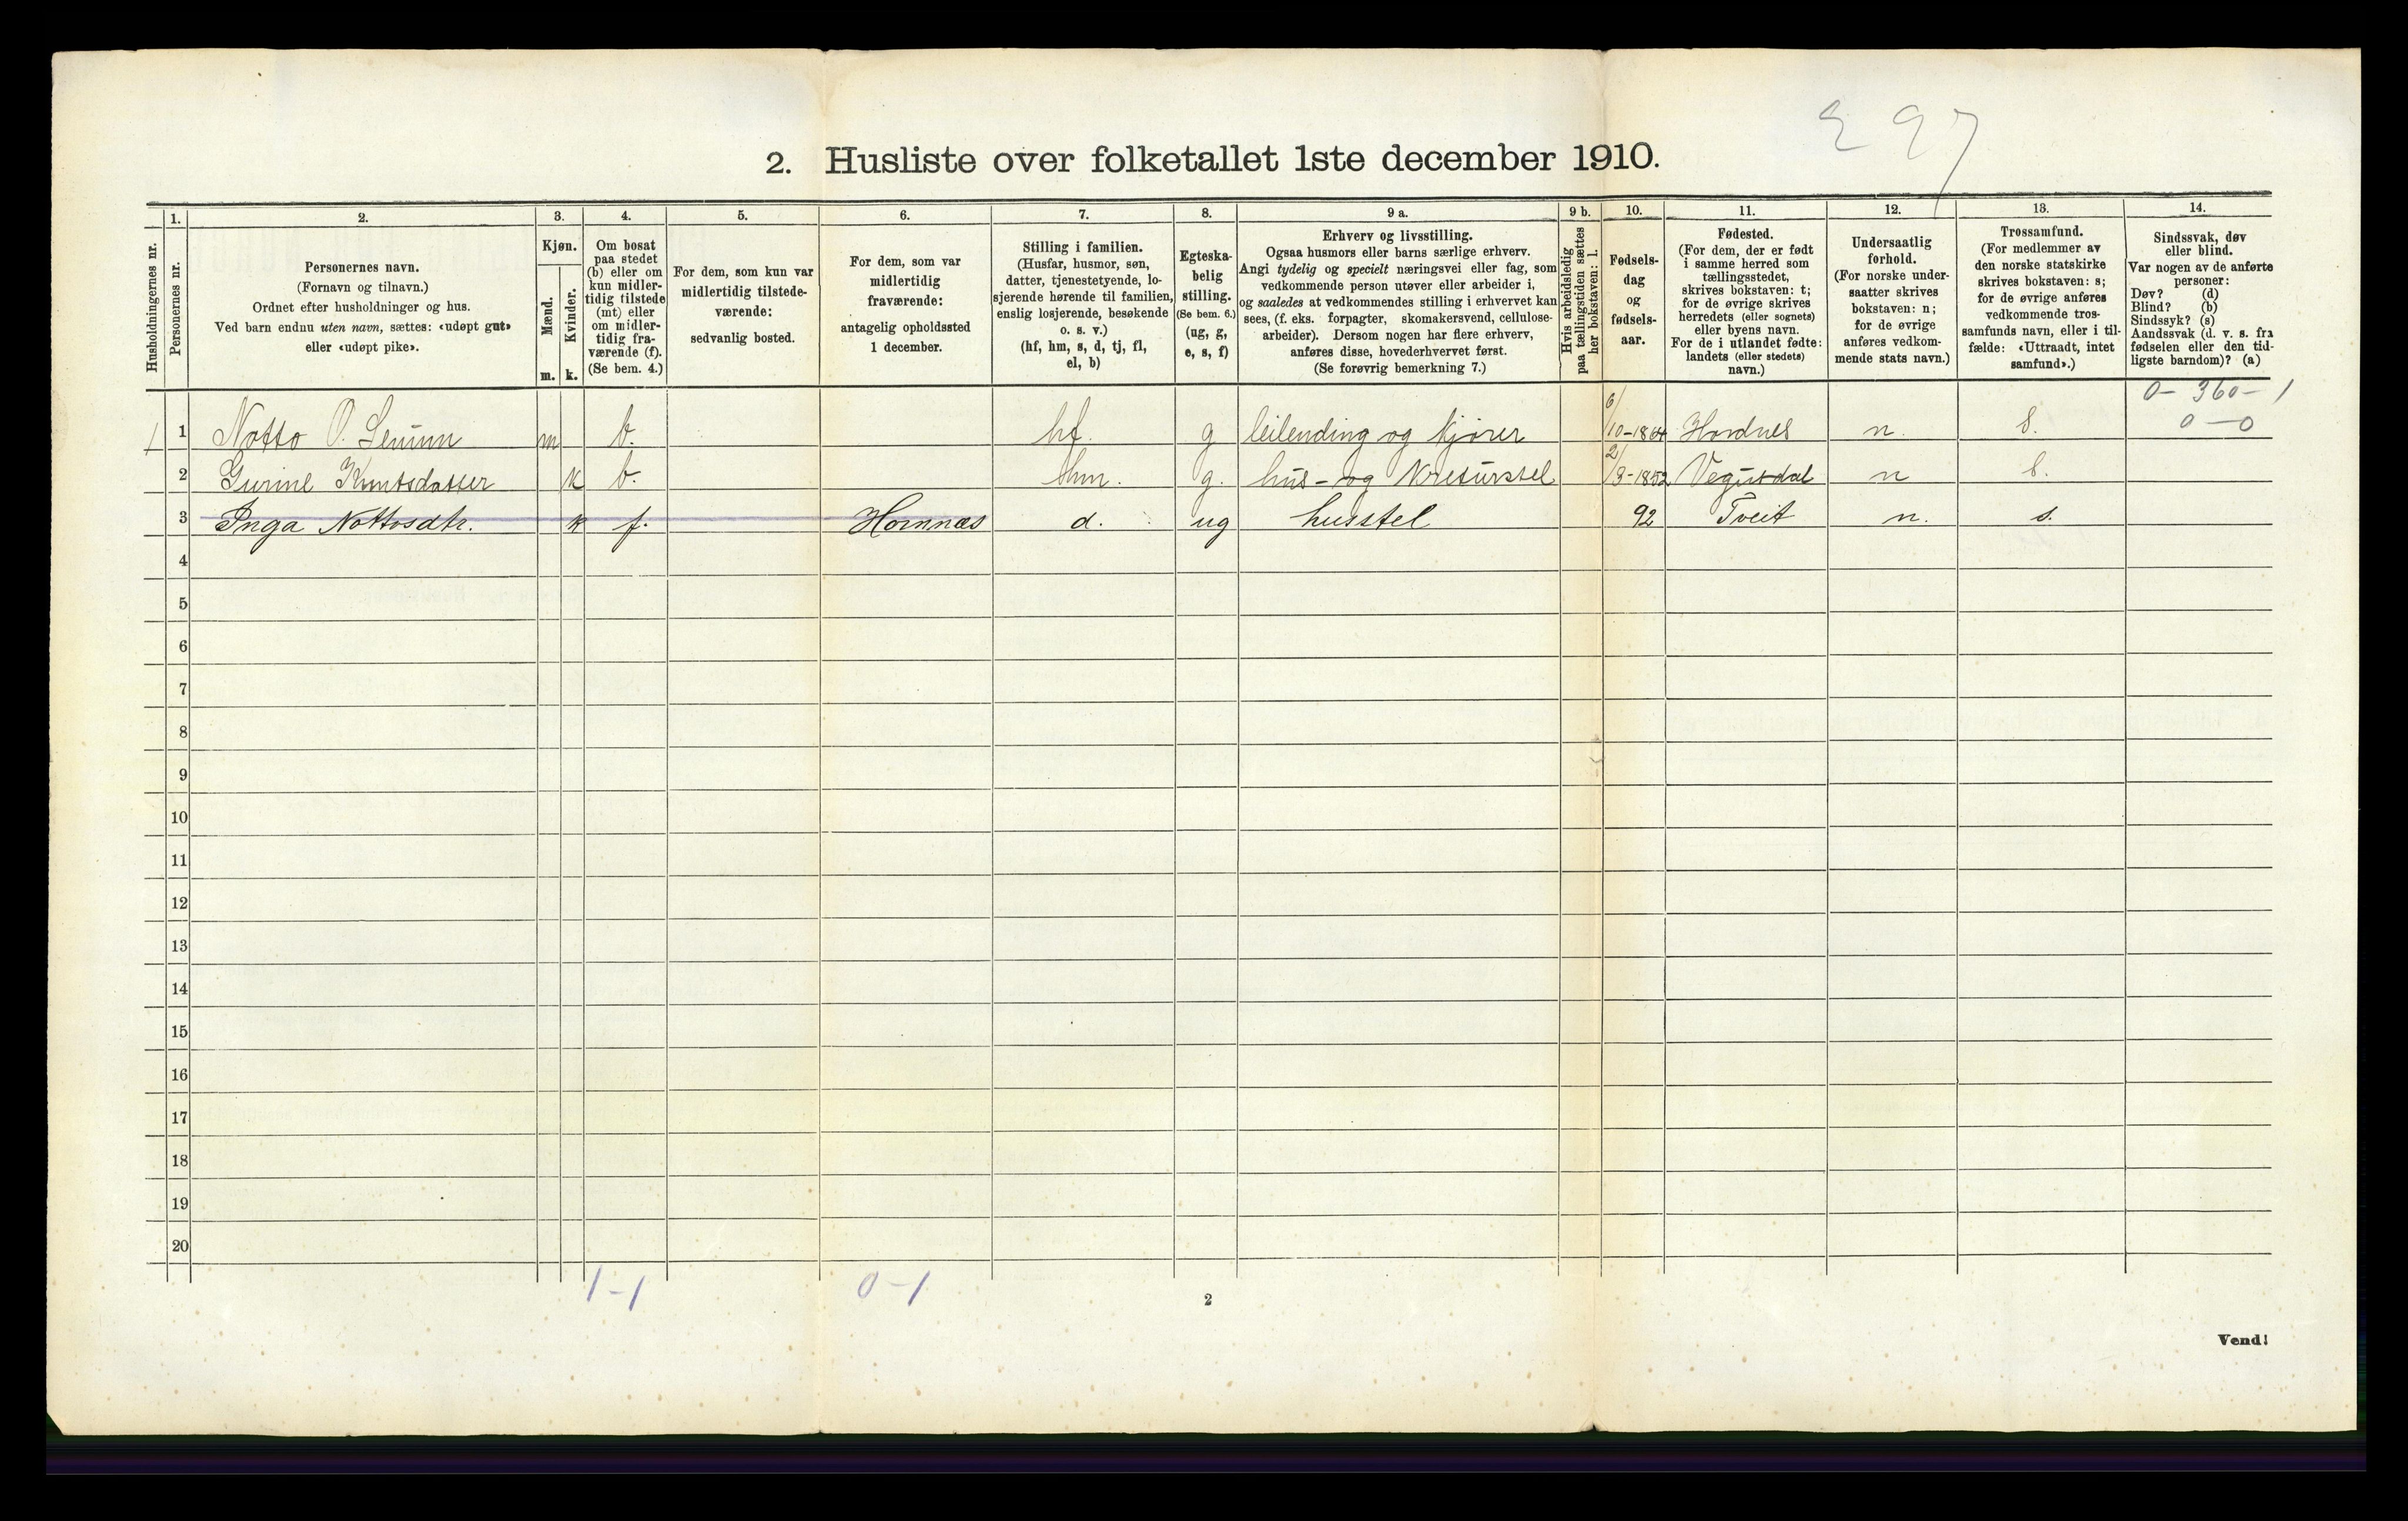 297
2. Husliste over folketallet 1ste december 1910.
1. 2. 3. 4. 5. 6. 7. 8. 9 a. 9 b. 10. 11. 12. 13. 14.
Husholdningernes nr.
Personernes nr.
Personernes navn.
(Fornavn og tilnavn.)
Ordnet efter husholdninger og hus.
Ved barn endnu uten navn, sættes: «udøpt gut»
eller «udøpt pike».
Kjøn.
Mænd.
Kvinder.
m. k.
Om bosat
paa stedet
(b) eller om
kun midler-
tidig tilstede
(mt) eller
om midler-
tidig fra-
værende (f).
(Se bem. 4.)
For dem, som kun var
midlertidig tilstede-
værende:
sedvanlig bosted.
For dem, som var
midlertidig
fraværende:
antagelig opholdssted
1 december.
Stilling i familien.
(Husfar, husmor, søn,
datter, tjenestetyende, lo-
sjerende hørende til familien,
enslig losjerende, besøkende
o. s. v.)
(hf, hm, s, d, tj, fl,
el, b)
Egteska-
belig
stilling.
(Se bem. 6.)
(ug, g,
e, s, f)
Erhverv og livsstilling.
Ogsaa husmors eller barns særlige erhverv.
Angi tydelig og specielt næringsvei eller fag, som
vedkommende person utøver eller arbeider i,
og saaledes at vedkommendes stilling i erhvervet kan
sees, (f. eks. forpagter, skomakersvend, cellulose-
arbeider). Dersom nogen har flere erhverv,
anføres disse, hovederhvervet først.
(Se forøvrig bemerkning 7.)
Hvis arbeidsledig
paa tællingstiden sættes
her bokstaven: l.
Fødsels-
dag
og
fødsels-
aar.
Fødested.
(For dem, der er født
i samme herred som
tællingsstedet,
skrives bokstaven: t;
for de øvrige skrives
herredets (eller sognets)
eller byens navn.
For de i utlandet fødte:
landets (eller stedets)
navn.)
Undersaatlig
forhold.
(For norske under-
saatter skrives
bokstaven: n;
for de øvrige
anføres vedkom-
mende stats navn.)
Trossamfund.
(For medlemmer av
den norske statskirke
skrives bokstaven: s;
for de øvrige anføres
vedkommende tros-
samfunds navn, eller i til-
fælde: «Uttraadt, intet
samfund».)
Sindssvak, døv
eller blind.
Var nogen av de anførte
personer:
Døv? (d)
Blind? (b)
Sindssyk? (s)
Aandssvak (d. v. s. fra
fødselen eller den tid-
ligste barndom)? (a)
0-360-1
1 1 Notto O. Senum m b. hf. g leilending og kjører 6/10-1864 Hordnes n. s. 0-0
2 Gurine Knutsdatter k b. hm. g. hus- og Kreturstel 2/3-1852 Vegusdal n s.
3 Inga Nottosdtr. k f. Hornnæs d. ug husstel 92 Tveit n. s.
4
5
6
7
8
9
10
11
12
13
14
15
16
17
18
19
20
1-1 0-1
2
Vend!